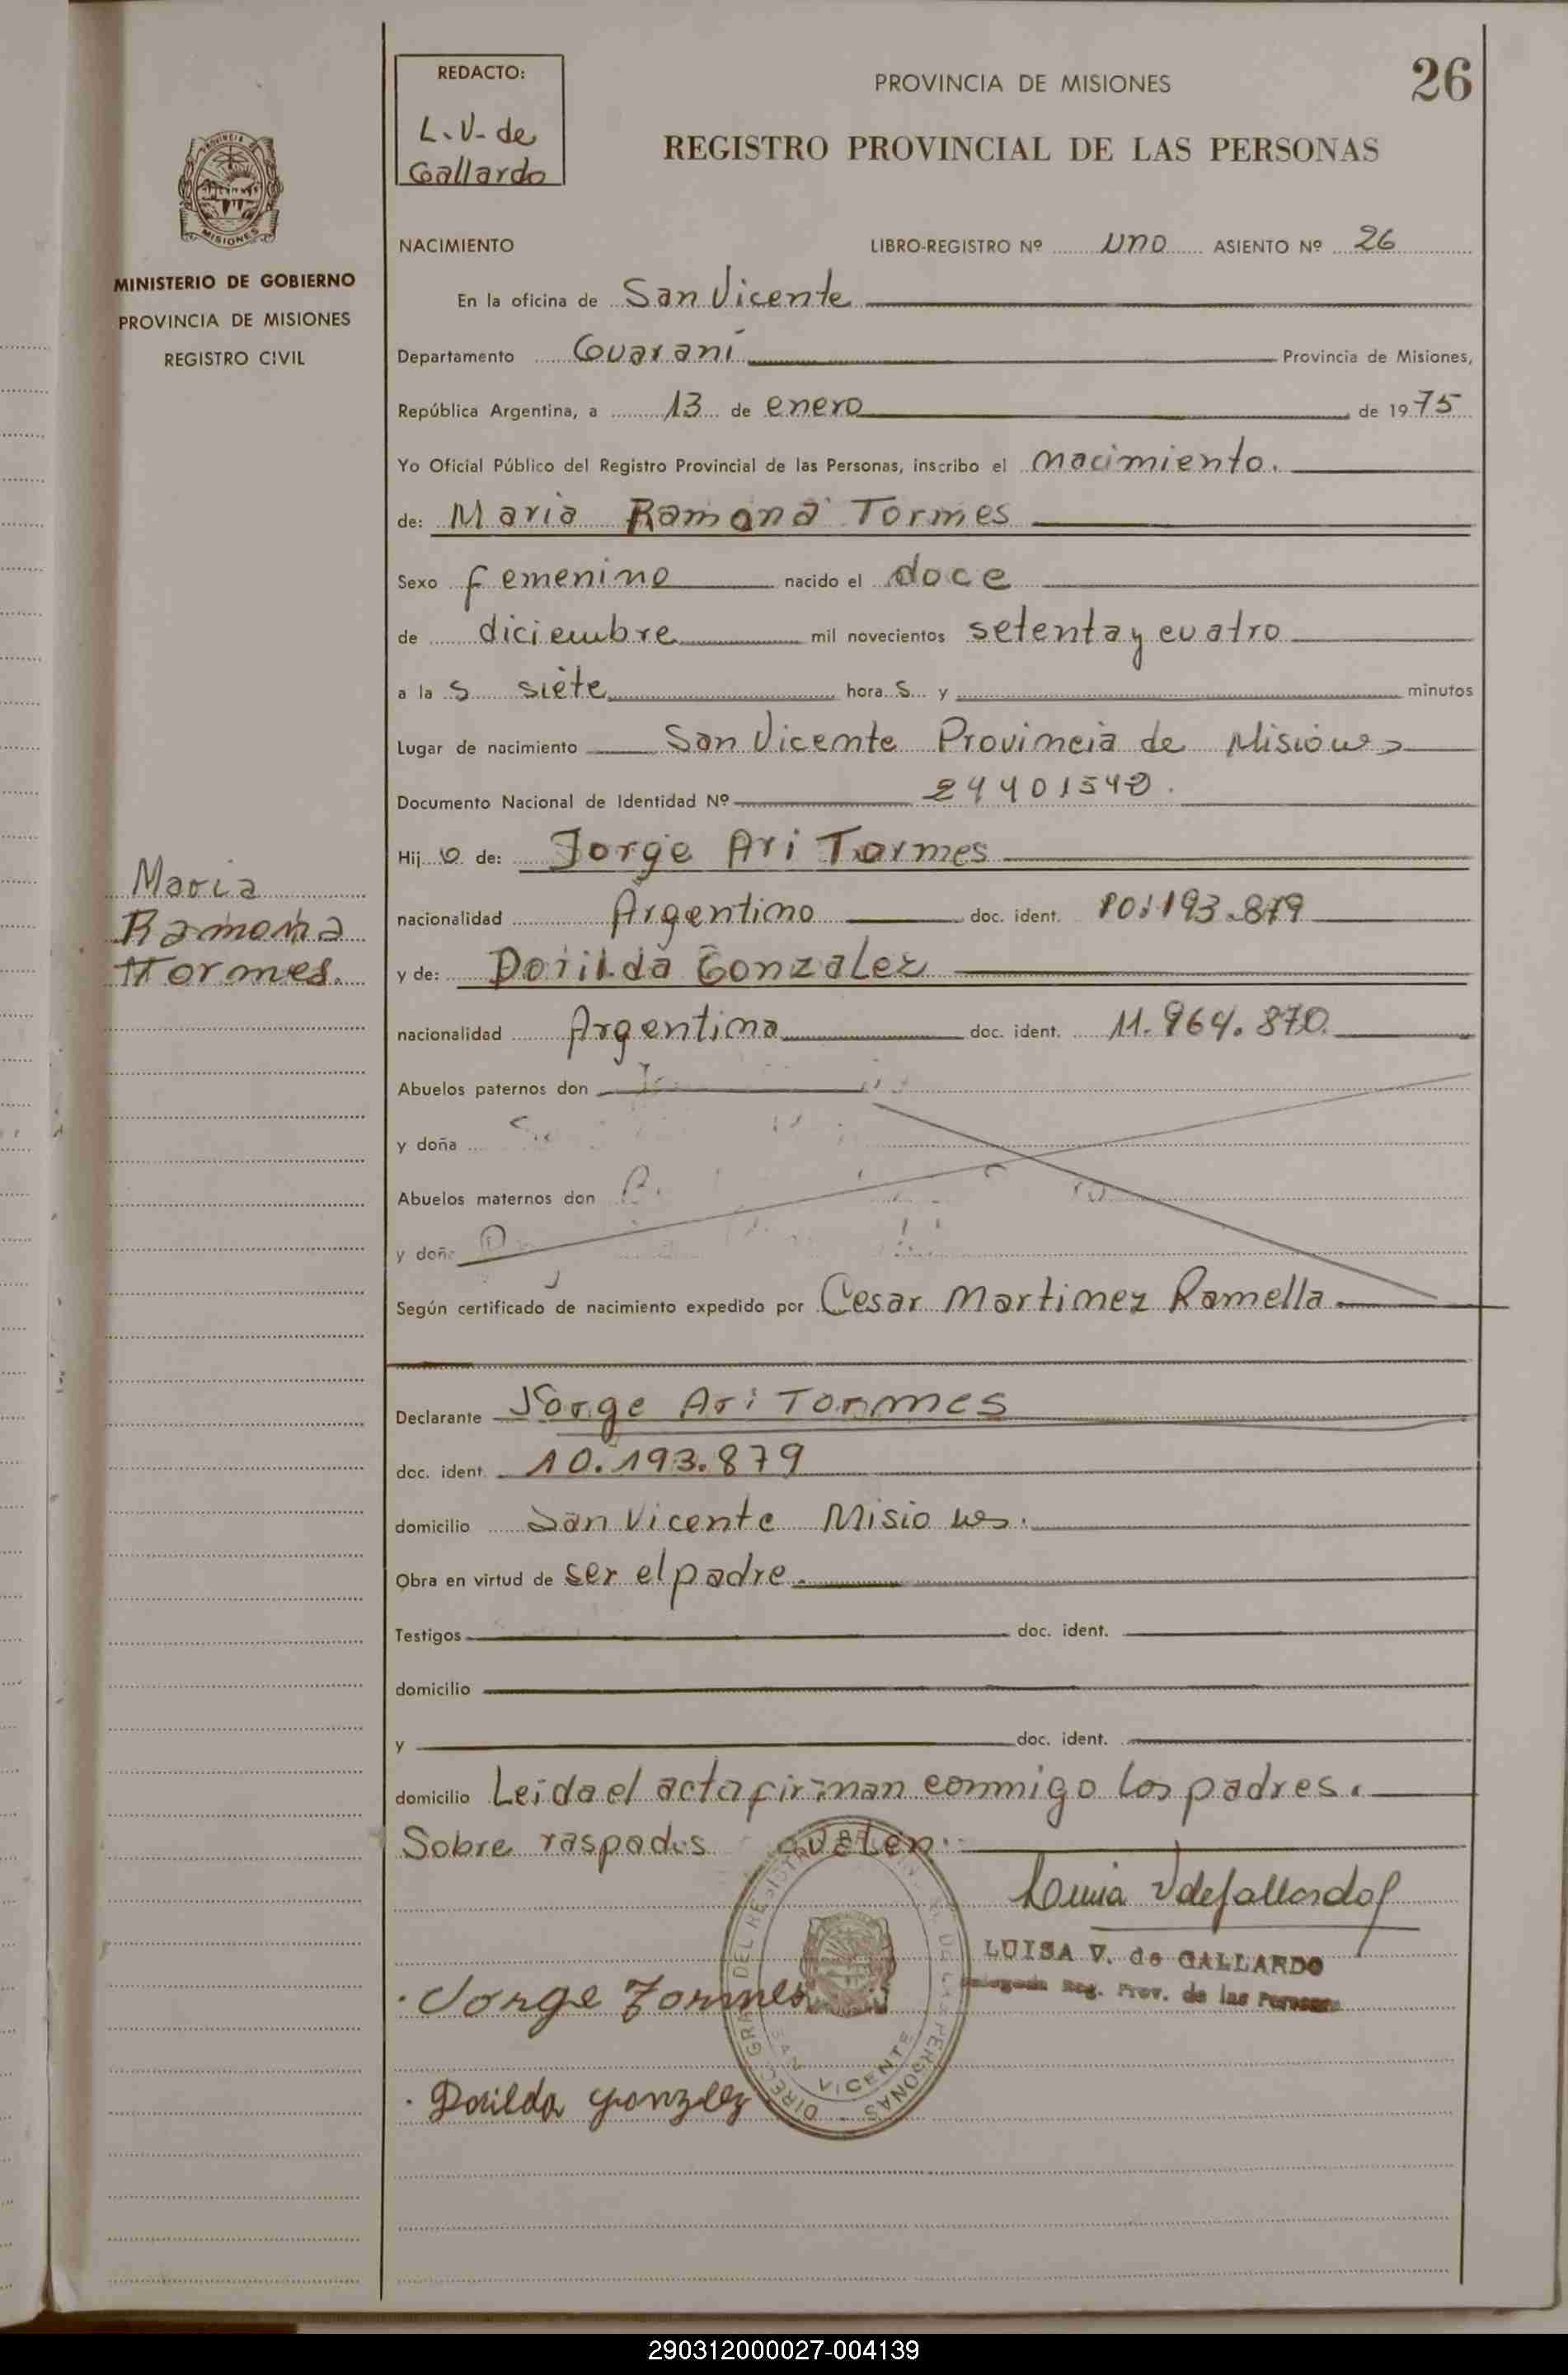 REDACTO:
L. V. de
Gallardo
PROVINCIA DE MISIONES
26
REGISTRO PROVINCIAL DE LAS PERSONAS
MISIONES
MINISTERIO DE GOBIERNO
PROVINCIA DE MISIONES
REGISTRO CIVIL
NACIMIENTO LIBRO-REGISTRO Nº uno ASIENTO Nº 26
En la oficina de San Vicente
Departamento Guaraní Provincia de Misiones,
República Argentina, a 13 de enero de 1975
Yo Oficial Público del Registro Provincial de las Personas, inscribo el nacimiento.
de: Maria Ramona Tormes
Sexo femenino nacido el doce
de diciembre mil novecientos setenta y cuatro
a las siete horas y minutos
Lugar de nacimiento San Vicente Provincia de Misiones
Documento Nacional de Identidad Nº 24401540.
Hija de: Jorge Ari Tormes
nacionalidad Argentino doc. ident. 10.193.879
Maria
Ramona
Tormes.
y de: Dorilda Gonzalez
nacionalidad Argentina doc. ident. 11.964.870.
Abuelos paternos don
y doña
Abuelos maternos don
y doña
Según certificado de nacimiento expedido por Cesar Martinez Ramella
Declarante Jorge Ari Tormes
doc. ident. 10.193.879
domicilio San Vicente Misiones.
Obra en virtud de ser el padre.
Testigos doc. ident.
domicilio
y doc. ident.
domicilio Leida el acta firman conmigo los padres.
Sobre raspados valen.
LUISA V. de GALLARDO
Delegada Reg. Prov. de las Personas
Jorge Tormes
SAN VICENTE
Dorilda Gonzlez
290312000027-004139